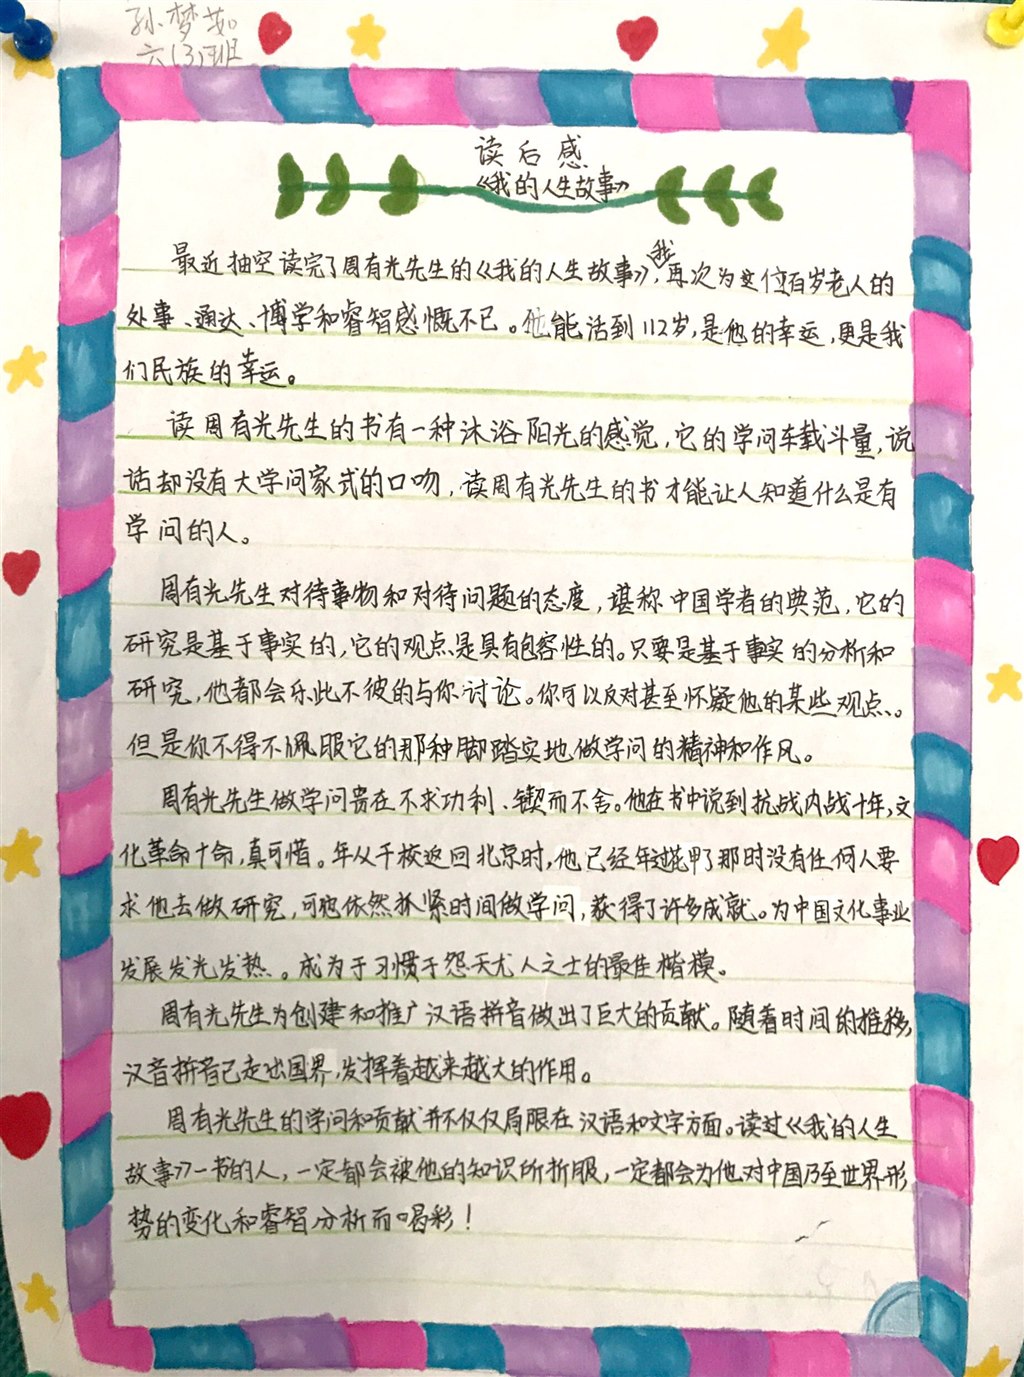 孙梦茹
六(3)班
读后感
《我的人生故事》
最近抽空读完了周有光先生的《我的人生故事》,我再次为这位百岁老人的
处事、通达、博学和睿智感慨不已。他能活到112岁,是他的幸运,更是我
们民族的幸运。
读周有光先生的书有一种沐浴阳光的感觉,它的学问车载斗量,说
话却没有大学问家式的口吻,读周有光先生的书才能让人知道什么是有
学问的人。
周有光先生对待事物和对待问题的态度,堪称中国学者的典范,它的
研究是基于事实的,它的观点是具有包容性的。只要是基于事实的分析和
研究,他都会乐此不彼的与你讨论。你可以反对甚至怀疑他的某些观点、。
但是你不得不佩服它的那种脚踏实地做学问的精神和作风。
周有光先生做学问贵在不求功利、锲而不舍。他在书中说到抗战内战十年,文
化革命十命,真可惜。年从干校返回北京时,他已经年过花甲了那时没有任何人要
求他去做研究,可他依然抓紧时间做学问,获得了许多成就。为中国文化事业
发展发光发热。成为于习惯于怨天尤人之士的最佳楷模。
周有光先生为创建和推广汉语拼音做出了巨大的贡献。随着时间的推移,
汉音拼音已走出国界,发挥着越来越大的作用。
周有光先生的学问和贡献并不仅仅局限在汉语和文字方面。读过《我的人生
故事》一书的人,一定都会被他的知识所折服,一定都会为他对中国乃至世界形
势的变化和睿智分析而喝彩!